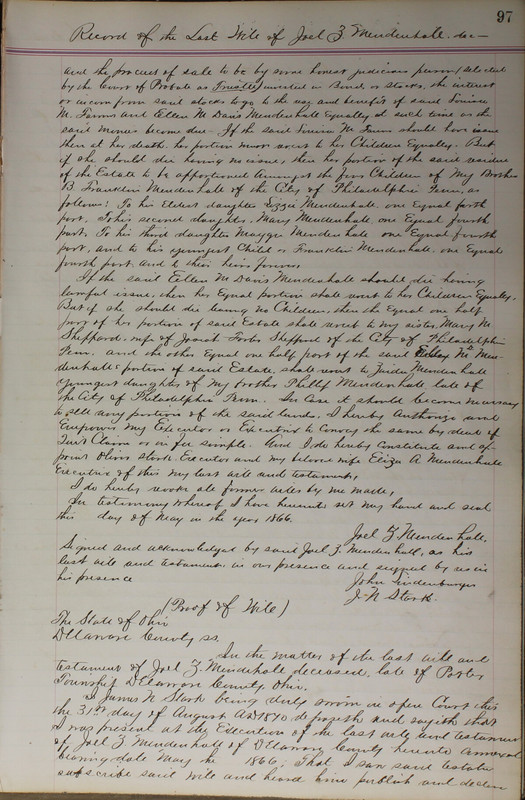 97
Record of the Last Will of Joel Z Mendenhall. dec—
and the proceeds of sale to be by some honest judicious person (selected
by the Court of Probate as Trustee) invested in Bonds or Stocks, the interest
or income from said stocks to go to the use and benefit of said Louisa
M. Fenn and Ellen M. Davis Mendenhall Equally at such time as the
said monies become due. If the said Louisa M Fenn should have issue
then at her death, her portion must revert to her Children Equally. But
if she should die having no issue, then her portion of the said residue
of the Estate to be apportioned amongst the four Children of My Brother
B. Franklin Mendenhall of the City of Philadelphia Penn, as
follows: To his Eldest daughter Lizzie Mendenhall, one Equal fourth
part, To his second daughter, Mary Mendenhall, one Equal fourth
part, To his third daughter Maggie Mendenhall one Equal fourth
part, and to his youngest Child Franklin Mendenhall, one Equal
fourth part and to their heirs forever,
If the said Ellen M Davis Mendenhall should die having
lawful issue, then her Equal portion shall revert to her Children Equally,
But if she should die leaving no Children, then the Equal one half
part of her portion of said Estate shall revert to my sister, Mary M.
Sheppard, wife of Josiah Forbs Sheppard of the City of Philadelphia
Penn. and the other Equal one half part of the said M Men-
denhalls portion of said Estate, shall revert to Mendenhall
youngest daughter of my brother Phillip Mendenhall late of
the City of Philadelphia Penn. In Case it should become necessary
to sell any portion of the said lands, I hereby Authorize and
Empower my Executor or Executrix to Convey the same by deed of
Quit Claim or in fee simple. And I do hereby Constitute and ap-
point Stark Executor and my beloved wife Eliza A Mendenhall
Executrix of this my last will and testament,
I do hereby revoke all former wills by me made,
In testimony whereof I have hereunto set my hand and seal
this day of May in the year 1866.
Joel Z Mendenhall,
Signed and acknowledged by said Joel Z. Mendenhall, as his
last will and testament in our presence and signed by us in
his presence
John
J. N Stark.
(Proof of Will)
The State of Ohio
Delaware County ss.
In the matter of the last will and
testament of Joel Z Mendenhall deceased, late of Porter
Township Delaware County, Ohio.
I James N Stark being duly sworn in open Court this
the 31st day of August AD 1870 deposeth and sayeth that
I was present at the Execution of the last will and testament
of Joel Z Mendenhall of Delaware County hereto annexed
bearing date May the 1866, That I saw said testator
subscribe said will and heard him publish and declare